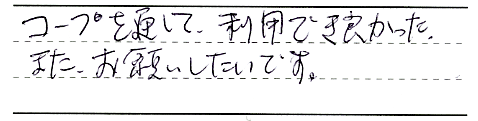 コープを通して、利用でき良かった。
また、お願いしたいです。